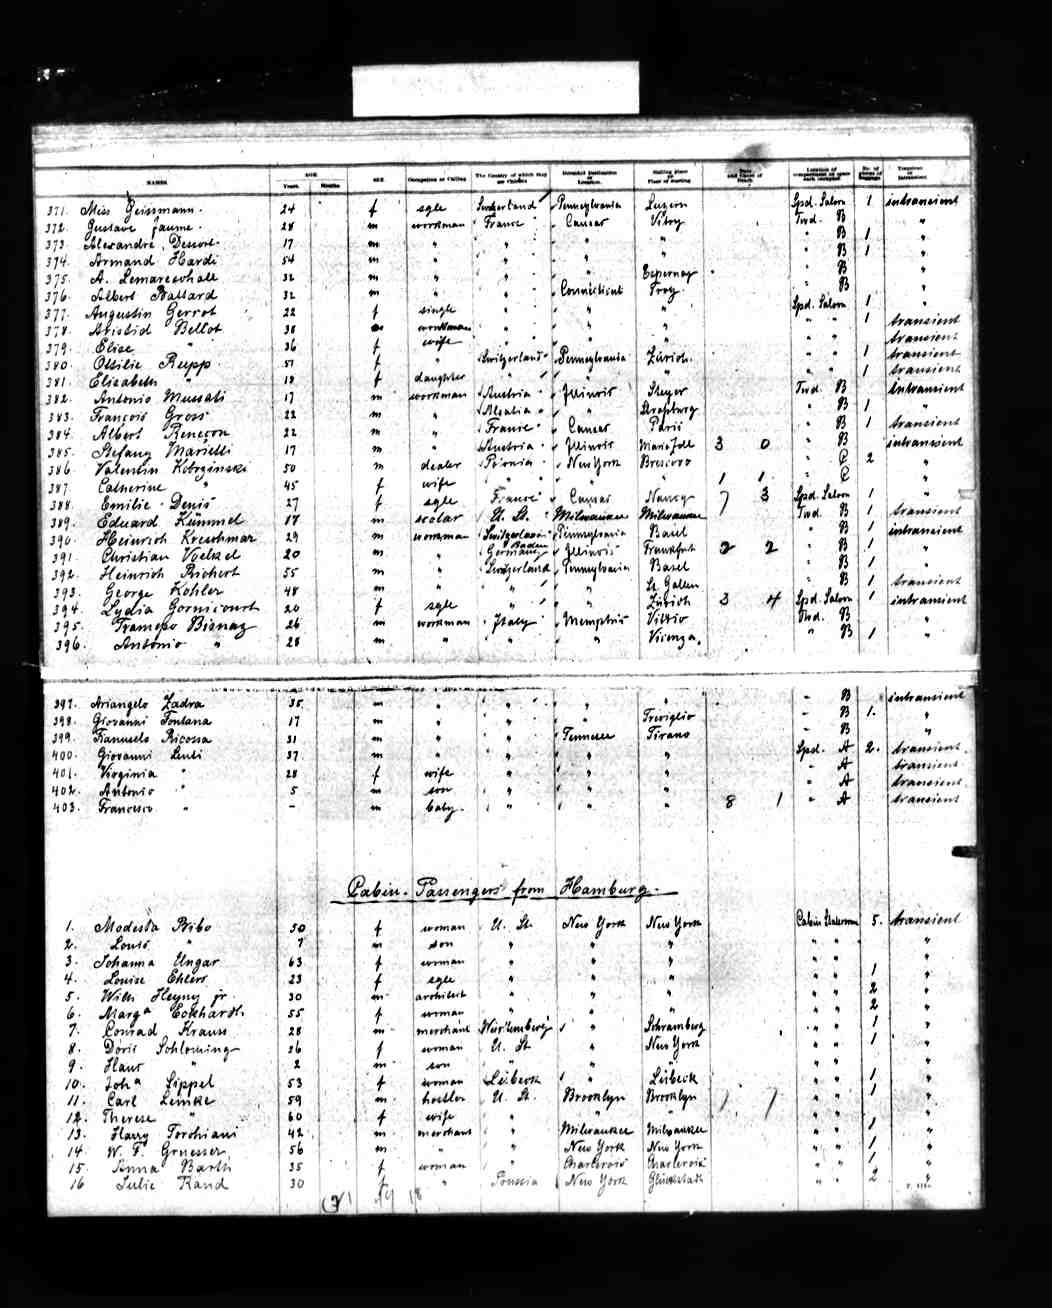 NAMES AGE Years Months SEX Occupation or Calling The Country of which they are Citizens Intended Destination or Location Starting place No. of pieces of Baggage Transient or Intransient
371. Miss Geissmann. 24 f sgle Switzerland Pennsylvania Luzern Spd. Salon 1 intransient
372. Gustave Jaume. 28 m workman France Canser Vitry Twd. B "
373. Alexandre Descort 17 m " " " " " B 1 "
374. Armand Hardi 54 m " " " " B 1 "
375. A. 32 m " " " Espernay " B "
376. Albert Ballard 32 m " " Connecticut Troy " B "
377. Augustin Gerrot 22 f single " " " Spd. Salon 1 "
378. Aristid Bellot 38 m workman " " " " " 1 transient
379. Elise " 36 f wife " " " " " transient
380. Ottilie Rupp 57 f " Switzerland Pennsylvania Zürich " " 1 transient
381. Elisabeth " 18 f daughter " " " " " 1 transient
382. Antonio Mussati 17 m workman Austria Illinois Steyer Twd. B intransient
383. François Gross 22 m " Alsatia " Strassburg " B 1 "
384. Albert Renecon 22 m " France Canser Paris " B 1 transient
385. Stefany Marielli 17 m " Austria Illinois Mariazell 3 0 " B intransient
386. Valentin Kobrzinski 50 m dealer Posnia New York " C 2 "
387 Catherine " 45 f wife " " " 1 1 " C "
388. Emilie Denis 27 f sgle France Canser Nancy 7 3 Spd. Salon 1 "
389. Eduard Kümmel 17 m scolar U. St. Milwaukee Milwaukee Twd. B 1 transient
390. Heinrich Kreschmar 29 m workman Switzerland Pennsylvania Basel " B 1 intransient
391. Christian Voelkel 20 m " Germany Baden Illinois Frankfurt 2 2 " B 1 "
392. Heinrich Richert 55 m " Switzerland Pennsylvania Basel " B 1 "
393. George Kohler 48 m " " " St Gallen " B 1 transient
394. Lydia Gornicourt 20 f sgle " " Zürich 3 4 Spd. Salon 1 intransient
395. Bisnaz 26 m workman Italy Memphis Twd. B "
396. Antonio " 28 m " " " Vicenza " B 1 "
397. Ariangelo Zadra 35 m " " " " " B intransient
398. Giovanni Fontana 17 m " " " Treviglio " B 1. "
399. Ricossa 31 m " " Tennessee Tirano " B "
400. Giovanni Lenti 37 m " " " " Spd. A 2. transient
401. Virginia " 28 f wife " " " " A transient
402. Antonio " 5 m son " " " " A transient
403. Francesco " - m baby " " " 8 1 " A transient
Cabin-Passengers from Hamburg.
1. Modesta Bibo 30 f woman U. St. New York New York Cabin 5. transient
2. Louis " 7 m son " " " " " "
3. Johanna Ungar 63 f woman " " " " " "
4. Louise Ehlers 23 f sgle " " " " " 1 "
5. Wilh Heyny jr 30 m architect " " " " " 2 "
6. Marga Eckhardt 55 f woman " " " " " 2 "
7. Conrad Krauss 28 m merchant Würtemberg " Schramberg " " 1 "
8. Doris Schloming 36 f woman U. St " New York " " 1 "
9. Hans " 2 m son " " " " " "
10. Joha Lippel 53 f woman Lübeck " Lübeck " " 1 "
11. Carl Lemke 59 m hostler U. St. Brooklyn Brooklyn 1 7 " " 1 "
12. Therese " 60 f wife " " " " " "
13. Harry Torchiani 42 m merchant " Milwaukee Milwaukee " " 1 "
14. W. F. Gruesser 56 m " " New York New York " " 1 "
15. Anna Barth 35 f woman " Charleroi Charleroi " " 1 "
16 Julie Rand 30 f " Prussia New York Glückstadt " " 2 "